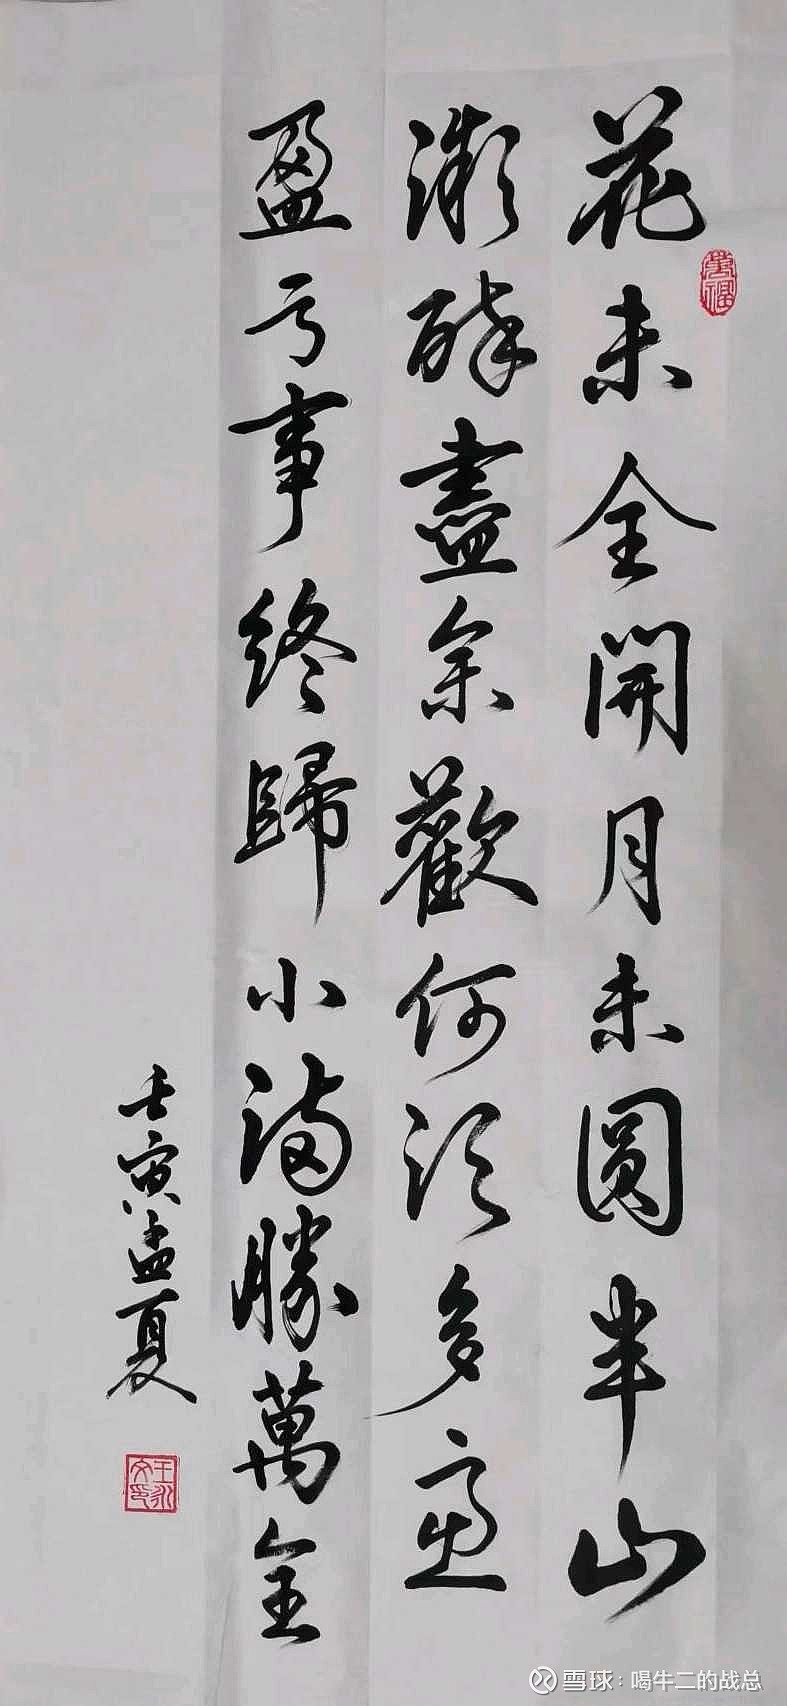 花未全開月未圓半山
微醉盡余歡何須多慮
盈亏事終歸小滿勝萬全
壬寅孟夏
萬福
雪球：喝牛二的战总